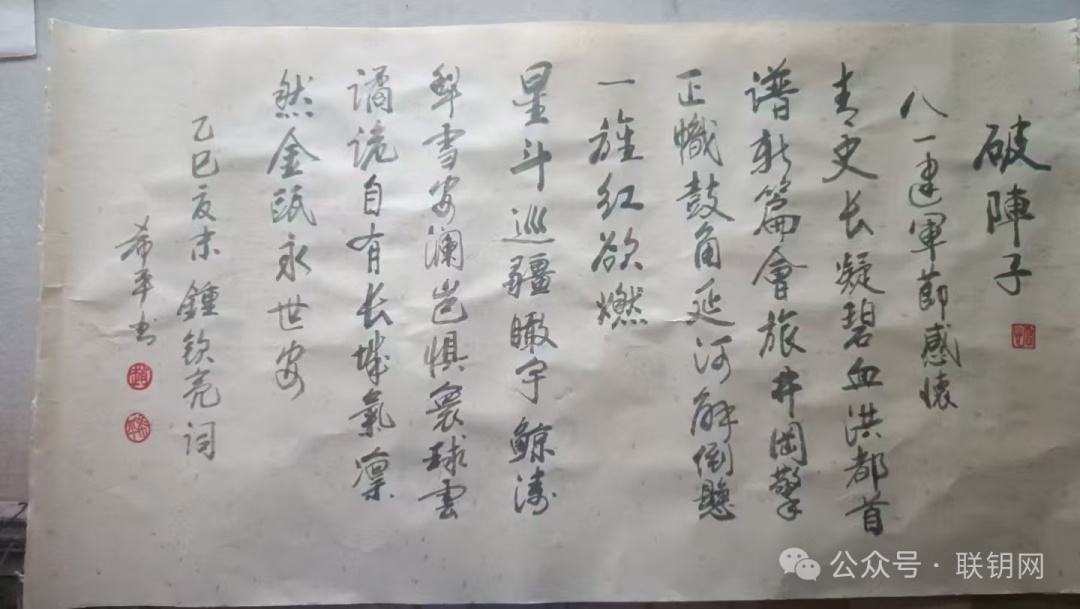 破陣子
八一建軍節感懷
青史长凝碧血洪都首
谱新篇會旅井岡擎
正幟鼓角延河解倒懸
一旌红欲燃
星斗巡疆瞰宇鲸涛
犁雪安澜岂惧寰球雲
谲诡自有长城氣凛
然金瓯永世安
乙巳亥末鍾钦亮词
希平书
公众号·联钥网